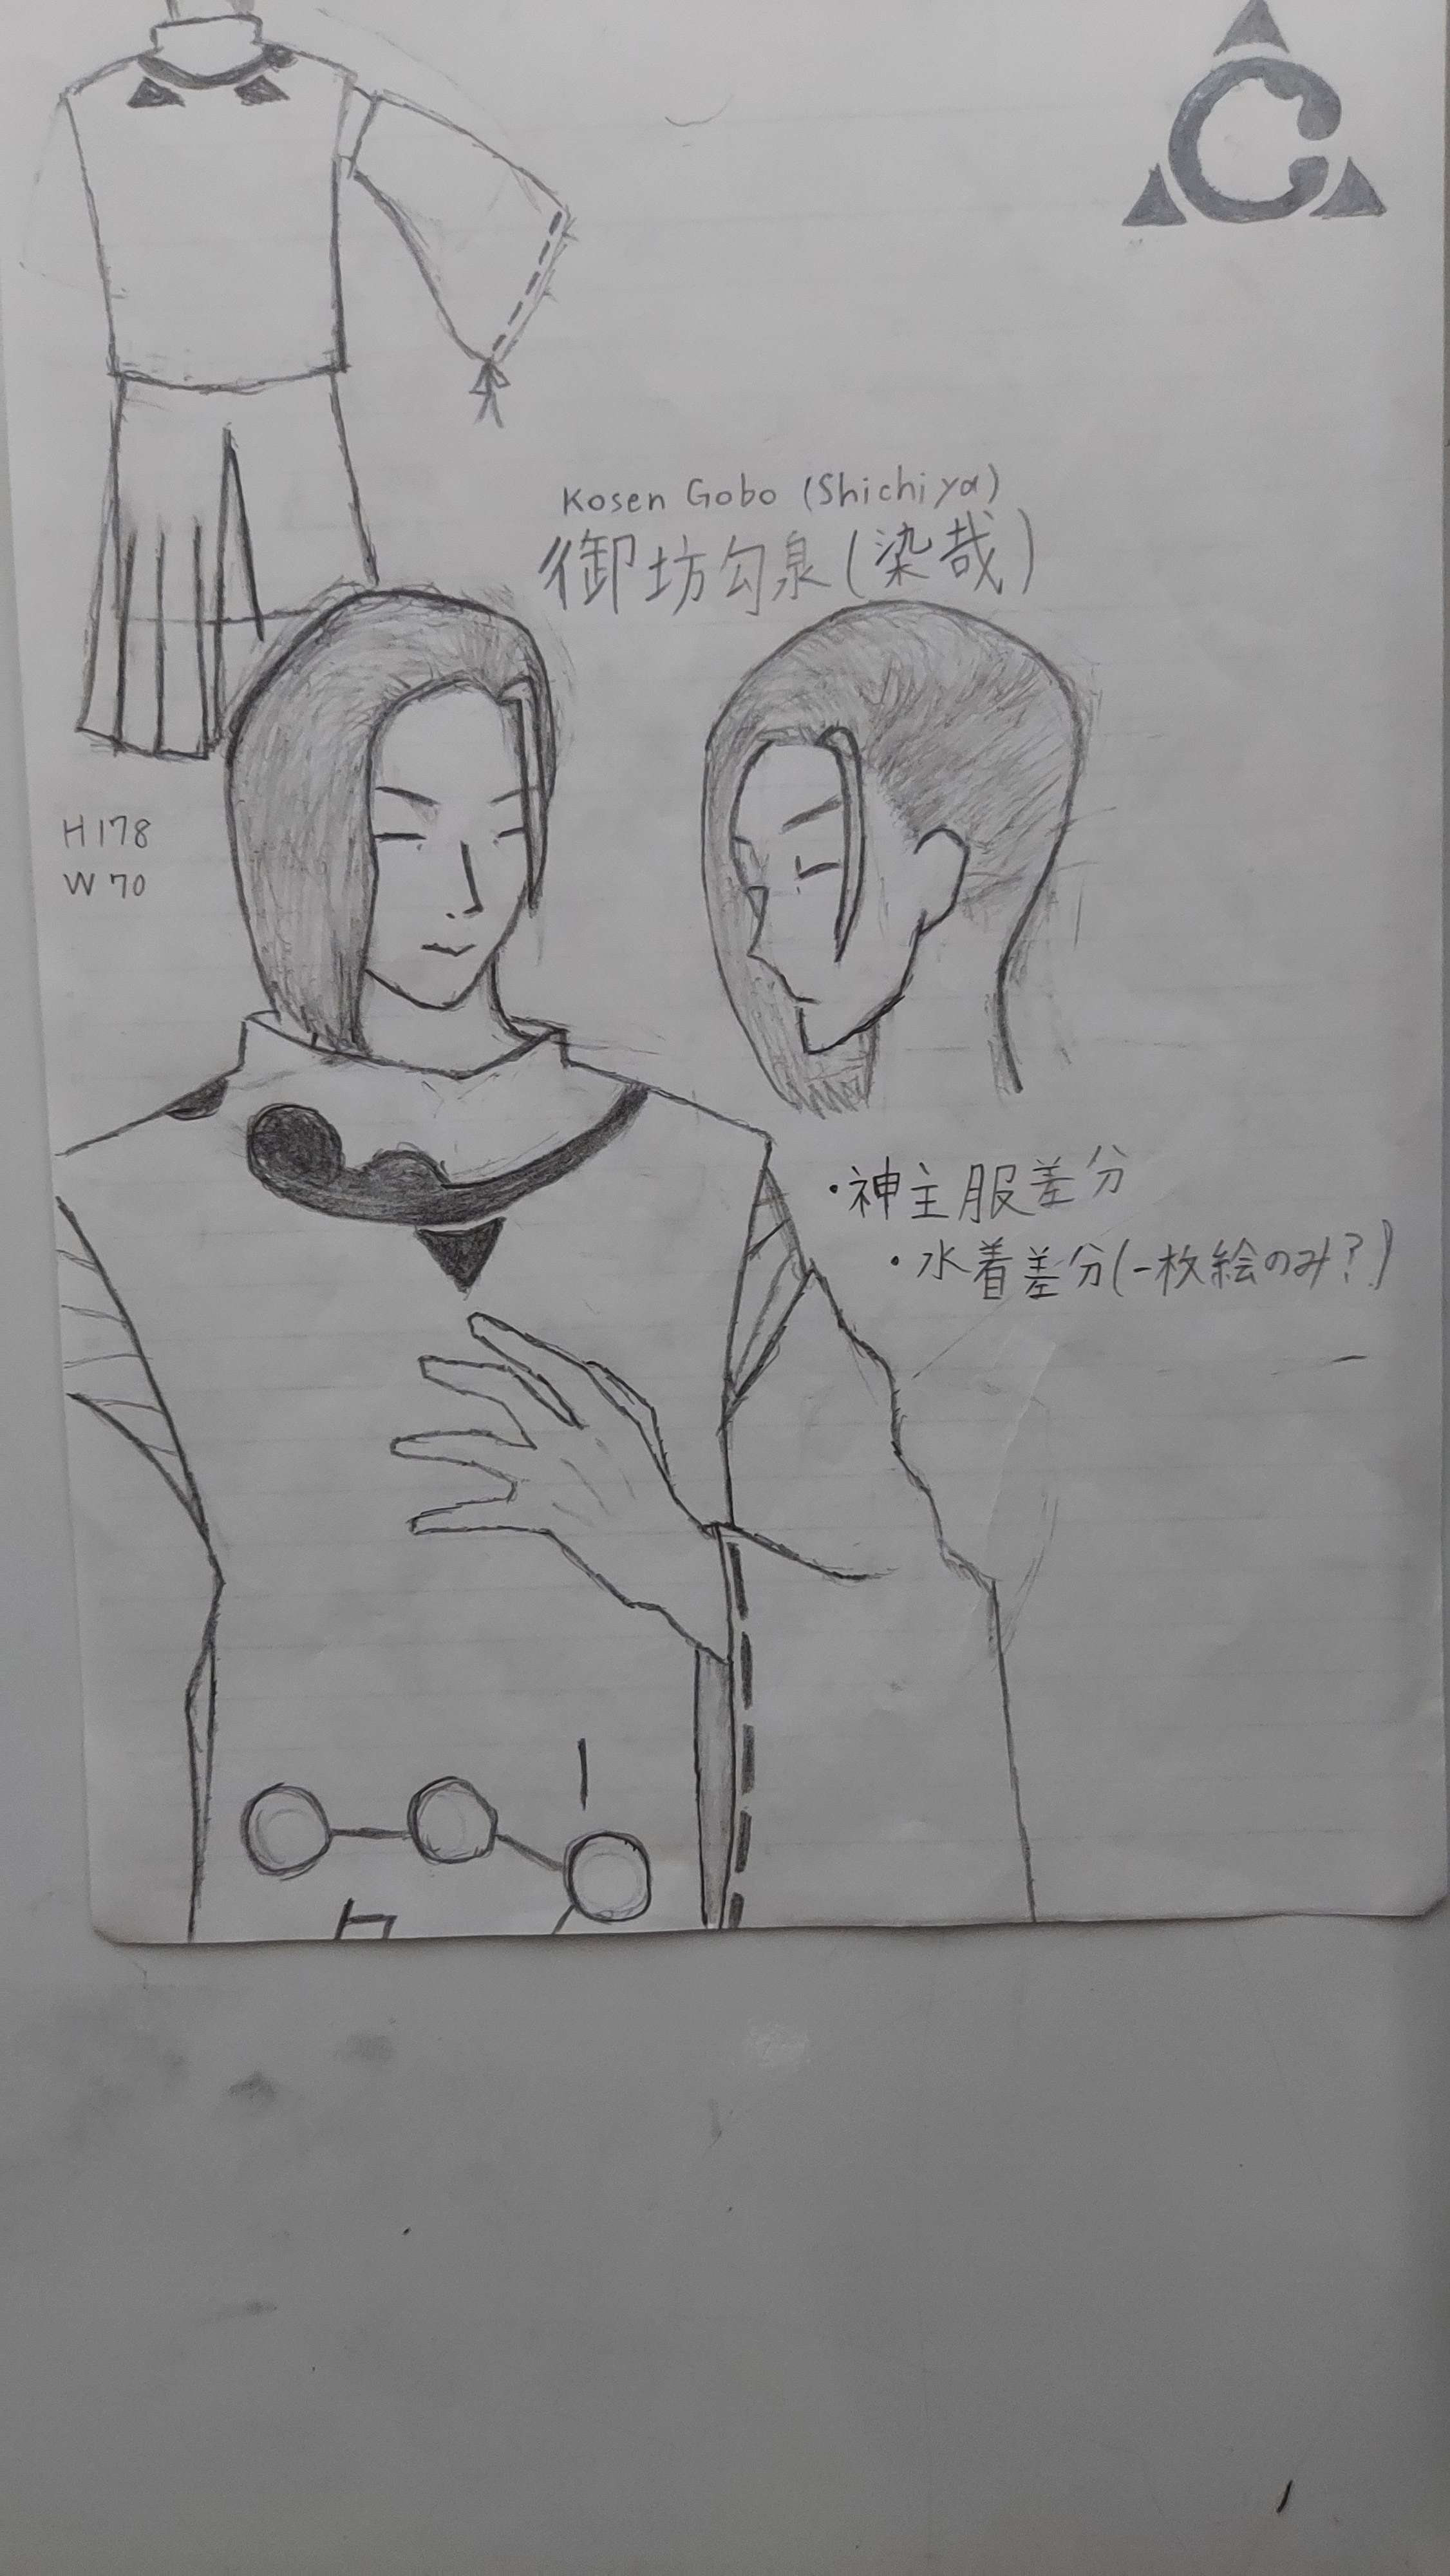 Kosen Gobo (Shichiya)
御坊勾泉(染哉)
H178
W70
・神主服差分
・水着差分(一枚絵のみ?)